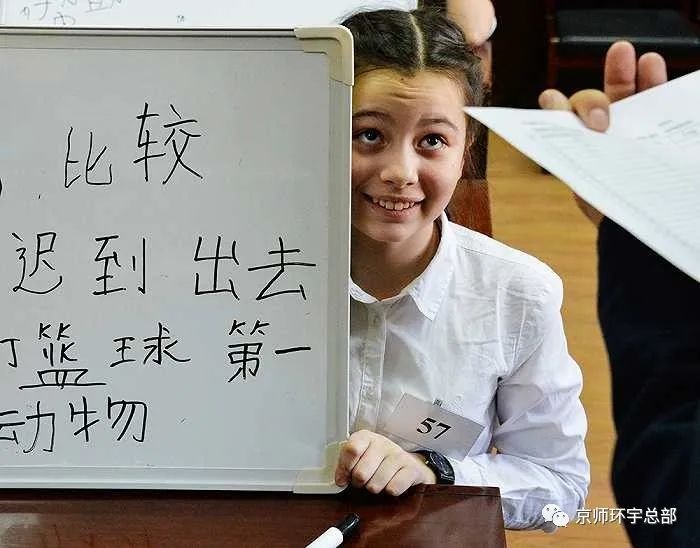 比较
迟到 出去
打篮球 第一
动物
57
京师环宇总部